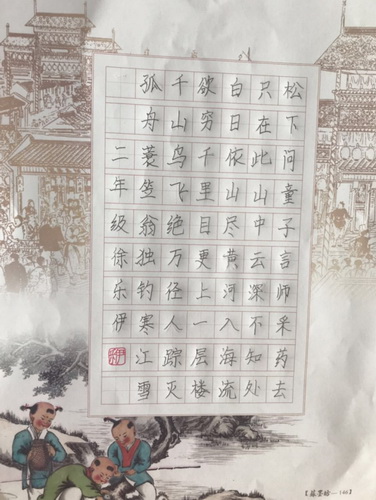 松下问童子言师采药去
只在此山中云深不知处
白日依山尽黄河入海流
欲穷千里目更上一层楼
千山鸟飞绝万径人踪灭
孤舟蓑笠翁独钓寒江雪
二年级徐乐伊